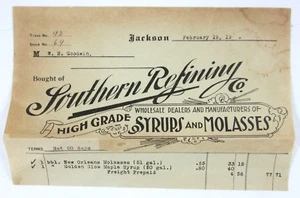 Jackson February 15, 19
M W. S. Goodwin,
Bought of
Southern Refining Co.
WHOLESALE DEALERS AND MANUFACTURERS OF
HIGH GRADE SYRUPS AND MOLASSES
TERMS Net 60 days
1 bbl. New Orleans Molasses (51 gal.) .65 33 15
1 " Golden Glow Maple Syrup (50 gal.) .80 40
Freight Prepaid 4 56 77 71